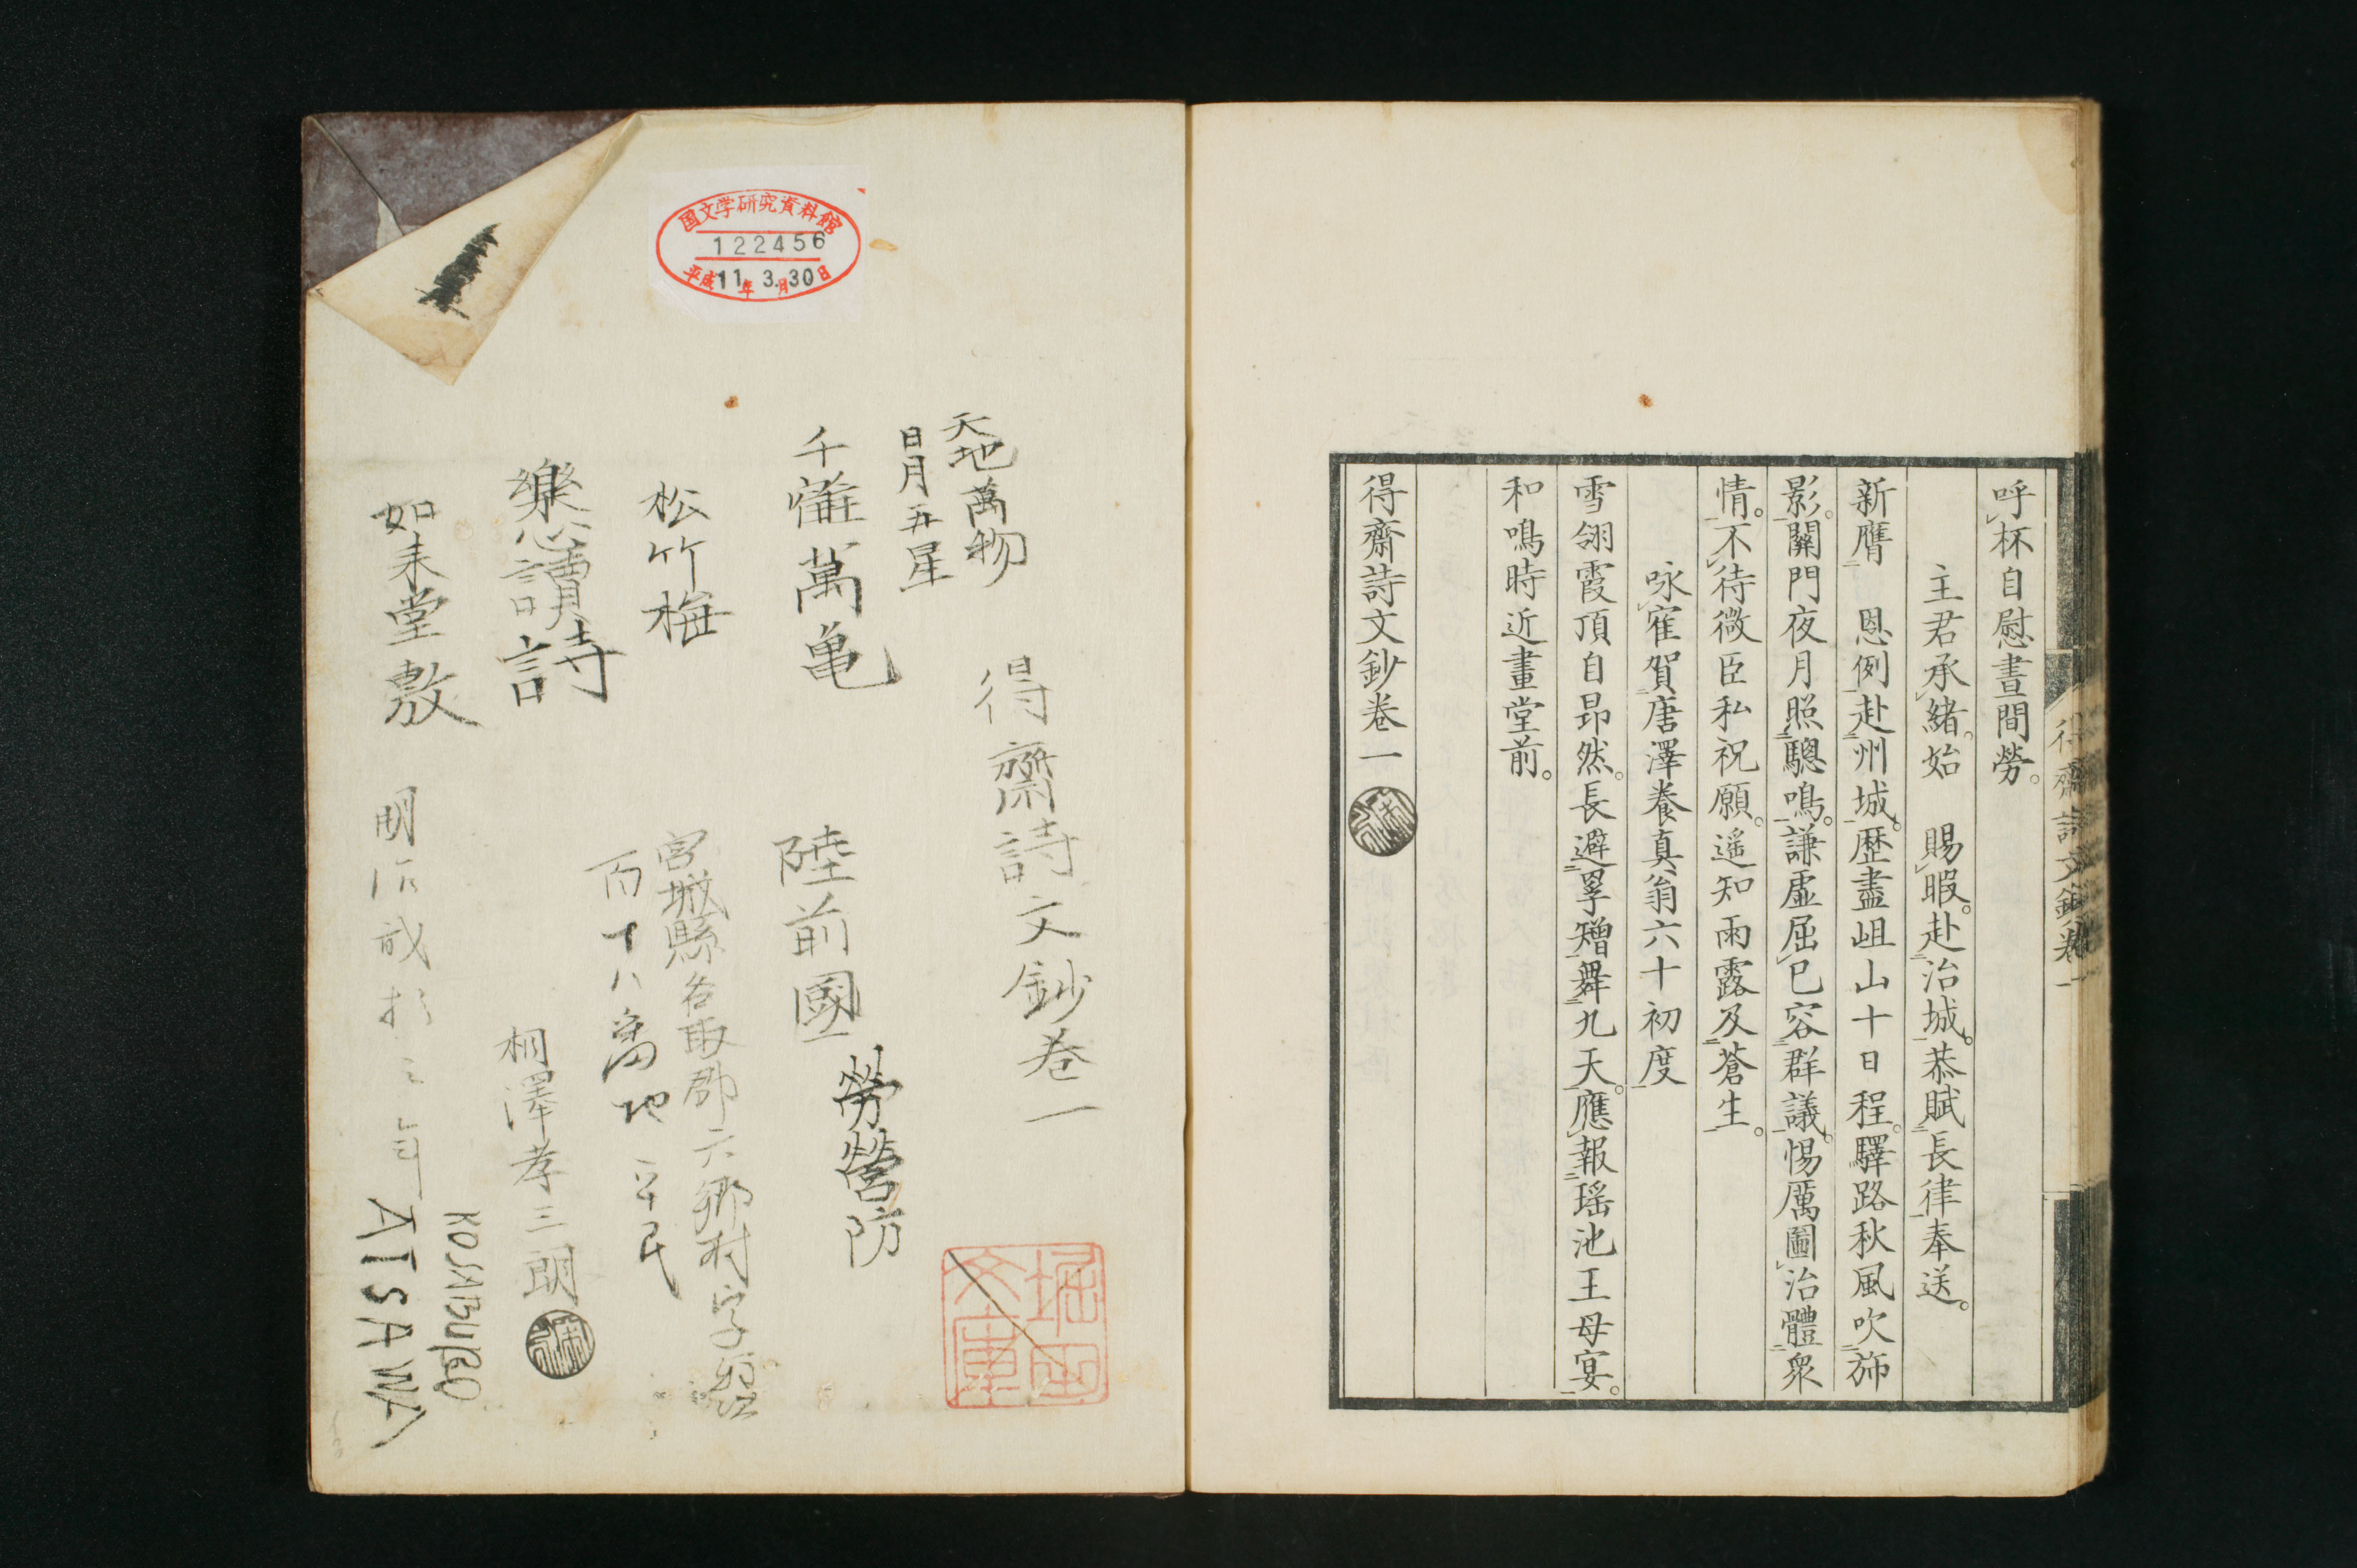 呼杯自慰晝間勞。
主君承緒。始　賜暇。赴治城。恭賦長律奉送。
新膺　恩例赴州城。歷盡岨山十日程。驛路秋風吹斾
影。關門夜月照驄鳴。謙虛屈已容群議。惕厲圖治體衆
情。不待微臣私祝願。遥知雨露及蒼生。
咏寉賀唐澤養真翁六十初度
雪翎霞頂自昂然。長避罦矰舞九天。應報瑶池王母宴。
和鳴時近畫堂前。
得齋詩文鈔卷一
得齋詩文鈔卷一
国文学研究資料館
122456
平成11年3月30日
天地萬物
日月五星
千寉萬亀
松竹梅
樂讀詩
如来堂敷
得齋詩文鈔卷一
勞營防
陸前國
宮城縣名取郡六郷村字
百十八番地　平民
相澤孝三朗
明治
年
KOSABURO
AISAWA
堀田文庫